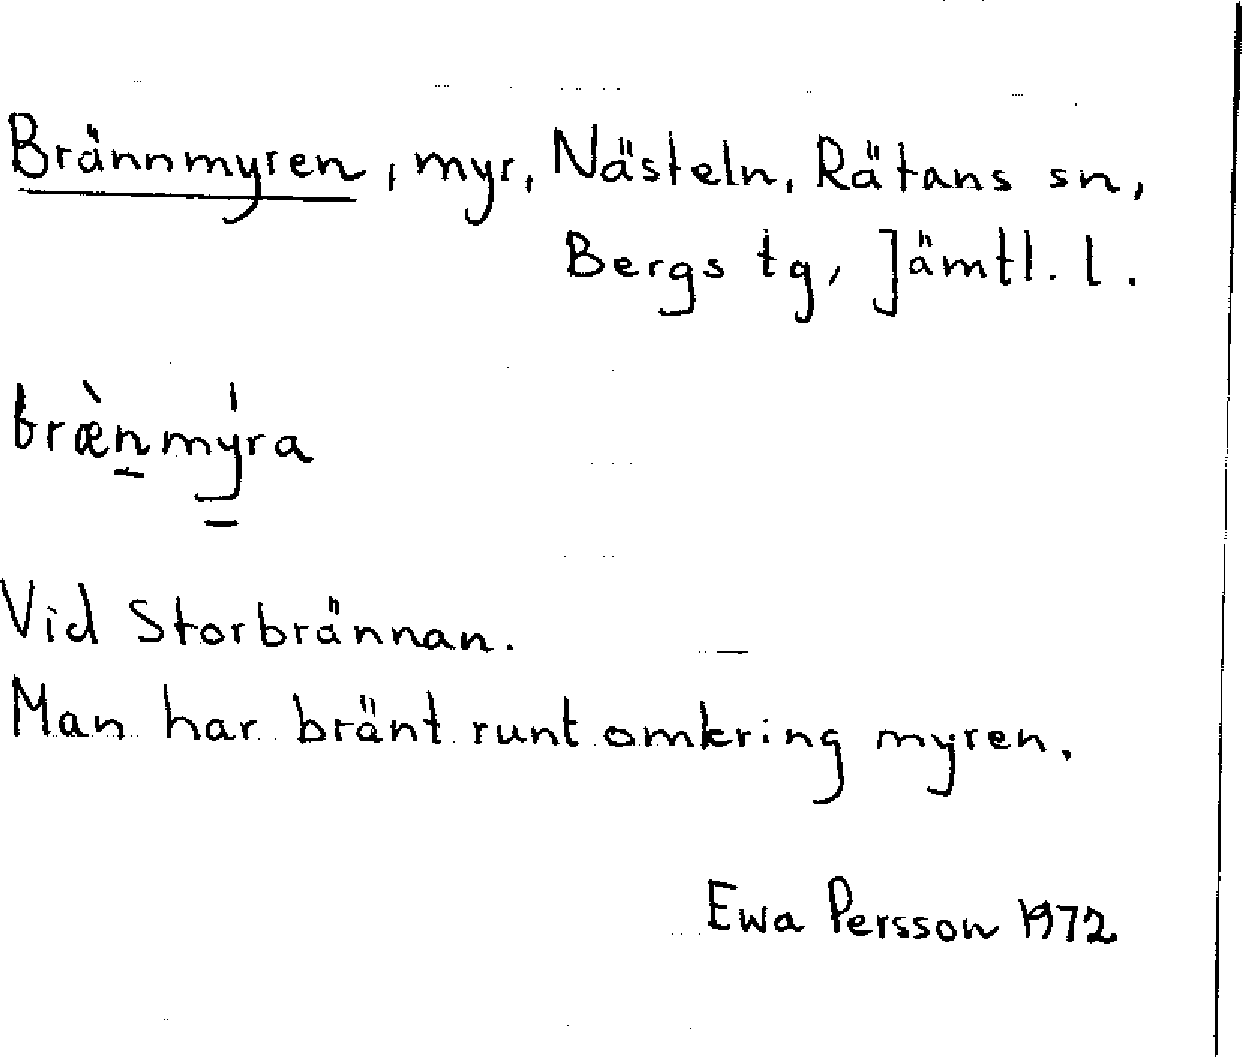 Brännmyren, myr, Nästeln, Rätans sn,
Bergs tg, Jämtl. l.
bræ̀n̠mý̠ra
Vid Storbrännan.
Man har bränt runt omkring myren.
Ewa Persson 1972